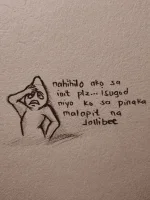 nahihilo ako sa
init plz... isugod
niyo ko sa pinaka
malapit na
Jollibee